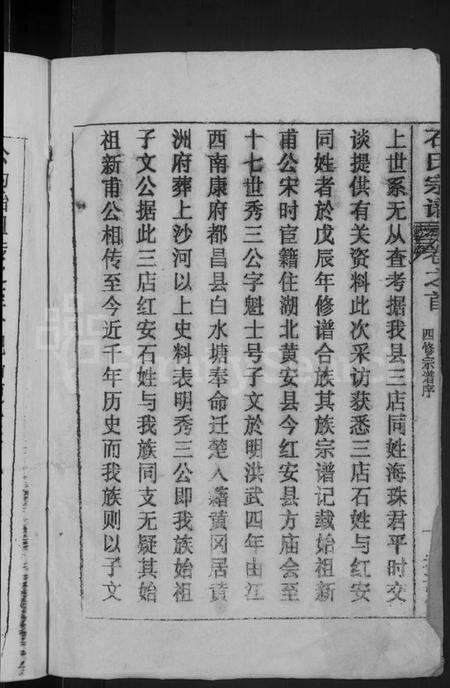 石氏宗谱
卷之首
四修宗谱序
上世系无从查考据我县三店同姓海珠君平时交
谈提供有关资料此次采访获悉三店石姓与红安
同姓者於戊辰年修谱合族其族宗谱记载始祖新
甫公宋时宦籍住湖北黄安县今红安县方庙会至
十七世秀三公字魁士号子文於明洪武四年由江
西南康府都昌县白水塘奉命迁楚入籍黄冈居黄
洲府葬上沙河以上史料表明秀三公即我族始祖
子文公据此三店红安石姓与我族同支无疑其始
祖新甫公相传至今近千年历史而我族则以子文